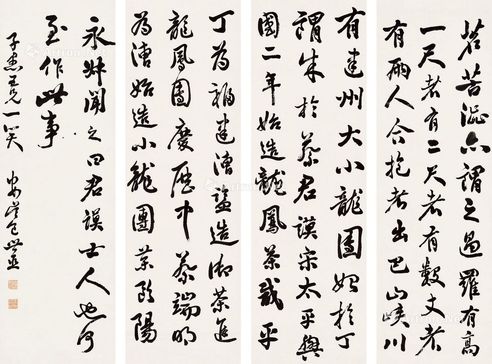 茗苦澀亦謂之過羅有高
一尺者有二尺者有數丈者
有兩人合抱者出巴山峽川
有建州大小龍團始於丁
謂成於蔡君謨宋太平興
國二年始造龍鳳茶咸平
丁為福建漕監造御茶進
龍鳳團慶歷中蔡端明
為漕始造小龍團茶歐陽
永叔聞之曰君謨士人也何
至作此事
子惠兄一笑 安吳包世臣